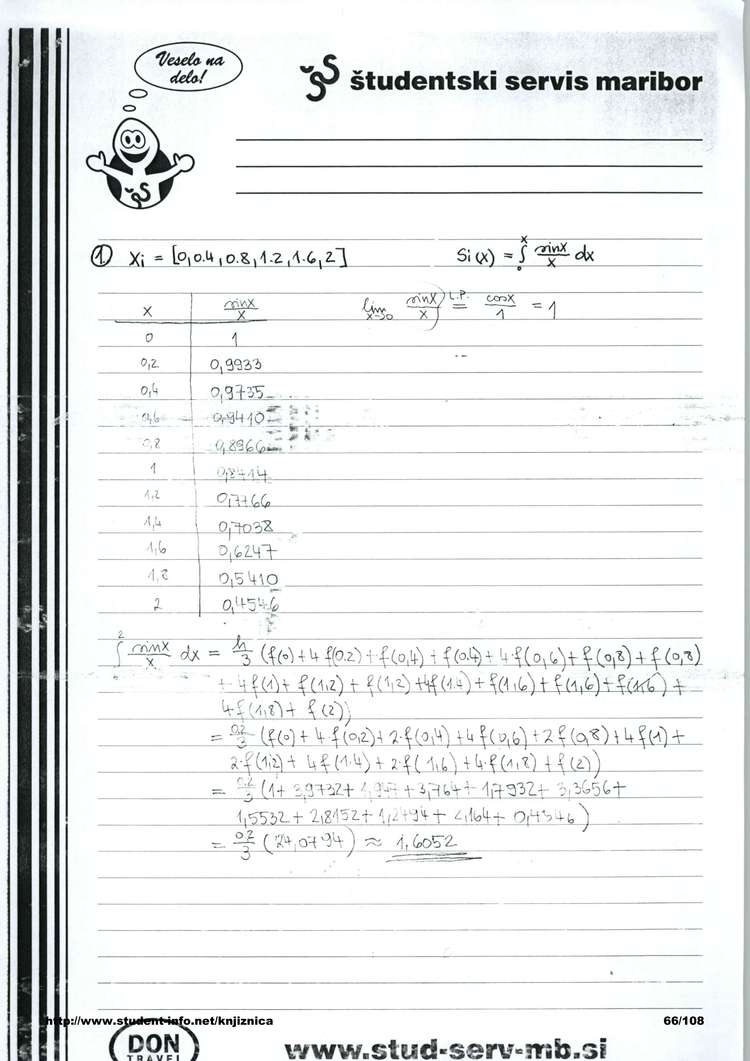 Veselo na
delo!
študentski servis maribor
1. Xi = [0, 0.4, 0.8, 1.2, 1.6, 2] Si(x) = ∫₀ˣ sinx/x dx
x | sinx/x lim x→0 (sinx/x) L.P. = cosx/1 = 1
0 | 1
0,2 | 0,9933
0,4 | 0,9735
0,6 | 0,9410
0,8 | 0,8966
1 | 0,8414
1,2 | 0,7766
1,4 | 0,7038
1,6 | 0,6247
1,8 | 0,5410
2 | 0,4546
∫₀² sinx/x dx = h/3 (f(0) + 4 f(0.2) + f(0,4) + f(0.4) + 4·f(0,6) + f(0,8) + f(0,8)
+ 4f(1) + f(1,2) + f(1,2) + 4f(1.4) + f(1,6) + f(1,6) + f(1,6) +
4f(1,8) + f(2))
= 0.2/3 (f(0) + 4·f(0,2) + 2·f(0,4) + 4f(0,6) + 2f(0,8) + 4f(1) +
2·f(1,2) + 4f(1.4) + 2·f(1,6) + 4·f(1,8) + f(2))
= 0.2/3 (1 + 3,9732 + 1,947 + 3,764 + 1,7932 + 3,3656 +
1,5532 + 2,8152 + 1,2494 + 2,164 + 0,4546)
= 0,2/3 (24,0794) ≈ 1,6052
http://www.student-info.net/knjiznica 66/108
DON
TRAVEL
www.stud-serv-mb.si